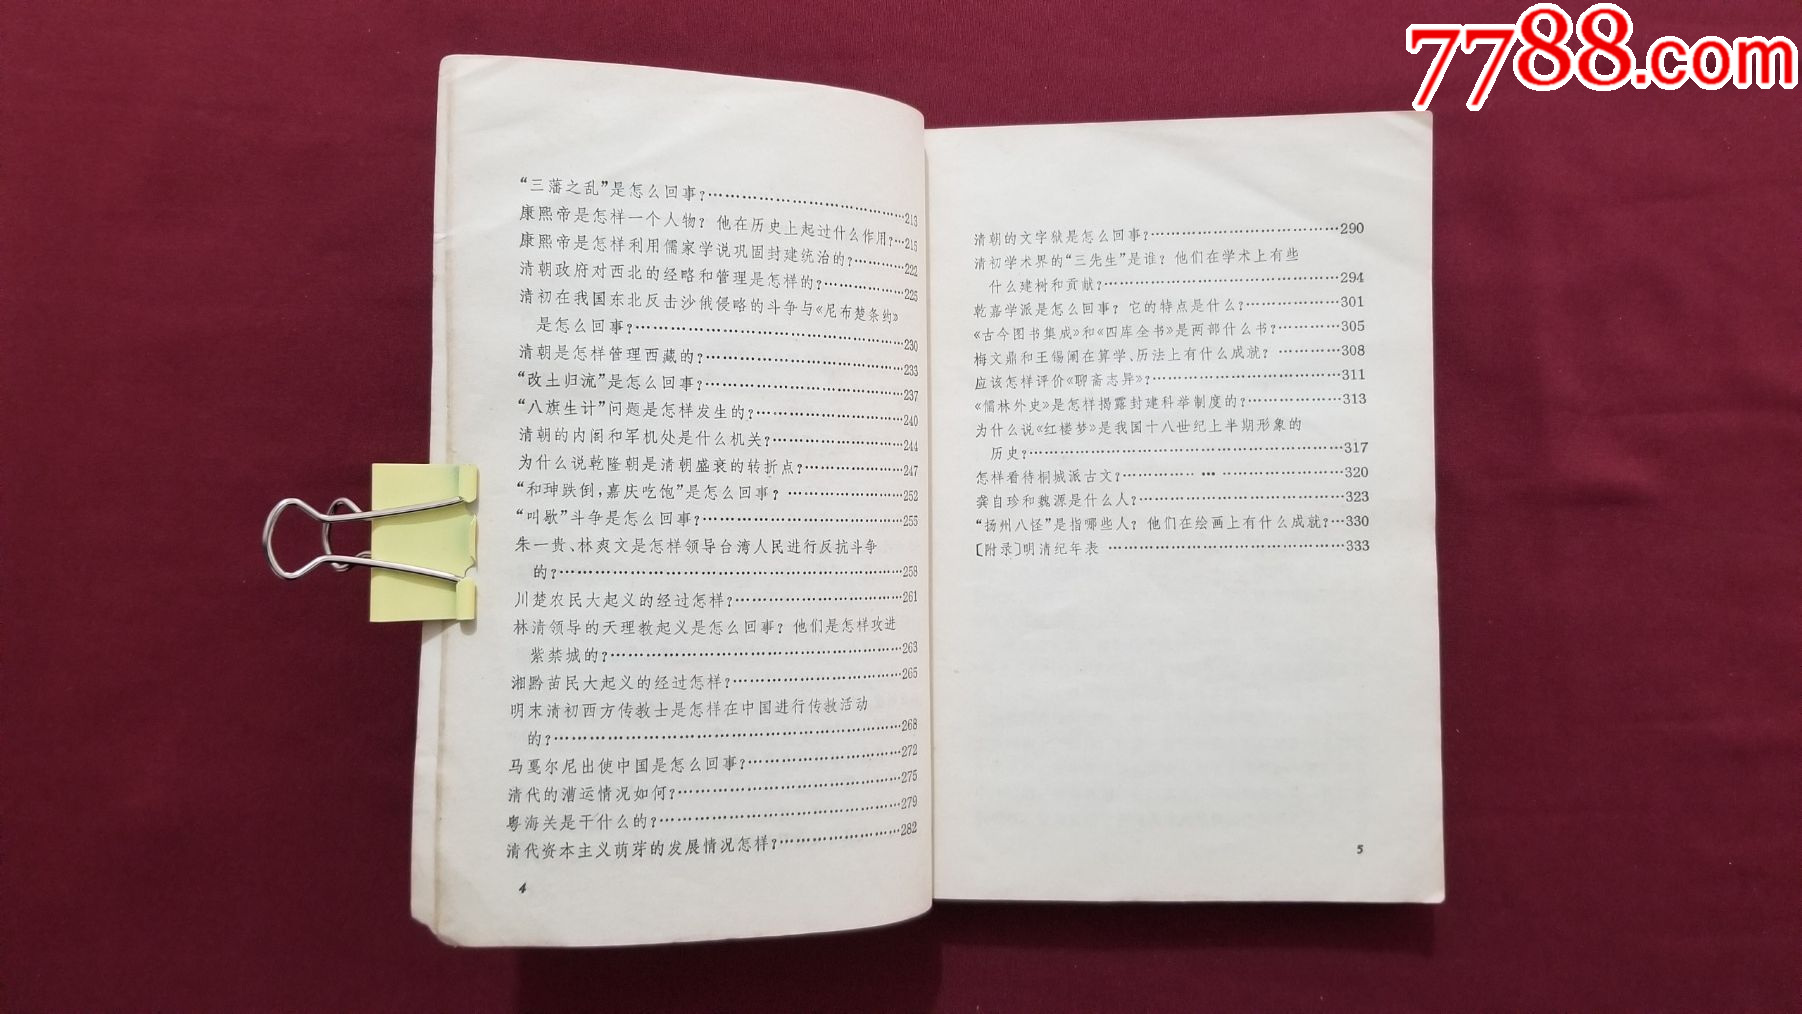 7788.com
“三藩之乱”是怎么回事?……………………………213
康熙帝是怎样一个人物? 他在历史上起过什么作用?…215
康熙帝是怎样利用儒家学说巩固封建统治的?…………222
清朝政府对西北的经略和管理是怎样的?………………225
清初在我国东北反击沙俄侵略的斗争与《尼布楚条约》
是怎么回事?………………………………………230
清朝是怎样管理西藏的?…………………………………233
“改土归流”是怎么回事?…………………………………237
“八旗生计”问题是怎样发生的?…………………………240
清朝的内阁和军机处是什么机关?………………………244
为什么说乾隆朝是清朝盛衰的转折点?…………………247
“和珅跌倒,嘉庆吃饱”是怎么回事? ……………………252
“叫歇”斗争是怎么回事?…………………………………255
朱一贵、林爽文是怎样领导台湾人民进行反抗斗争
的?…………………………………………………258
川楚农民大起义的经过怎样?……………………………261
林清领导的天理教起义是怎么回事? 他们是怎样攻进
紫禁城的?…………………………………………263
湘黔苗民大起义的经过怎样?……………………………265
明末清初西方传教士是怎样在中国进行传教活动
的?…………………………………………………268
马戛尔尼出使中国是怎么回事?…………………………272
清代的漕运情况如何?……………………………………275
粤海关是干什么的?………………………………………279
清代资本主义萌芽的发展情况怎样?……………………282
4
清朝的文字狱是怎么回事?………………………………290
清初学术界的“三先生”是谁? 他们在学术上有些
什么建树和贡献?……………………………………294
乾嘉学派是怎么回事? 它的特点是什么?………………301
《古今图书集成》和《四库全书》是两部什么书?…………305
梅文鼎和王锡阐在算学、历法上有什么成就? …………308
应该怎样评价《聊斋志异》?………………………………311
《儒林外史》是怎样揭露封建科举制度的?………………313
为什么说《红楼梦》是我国十八世纪上半期形象的
历史?…………………………………………………317
怎样看待桐城派古文?………… … …………………320
龚自珍和魏源是什么人?…………………………………323
“扬州八怪”是指哪些人? 他们在绘画上有什么成就?…330
〔附录〕明清纪年表 ………………………………………333
5